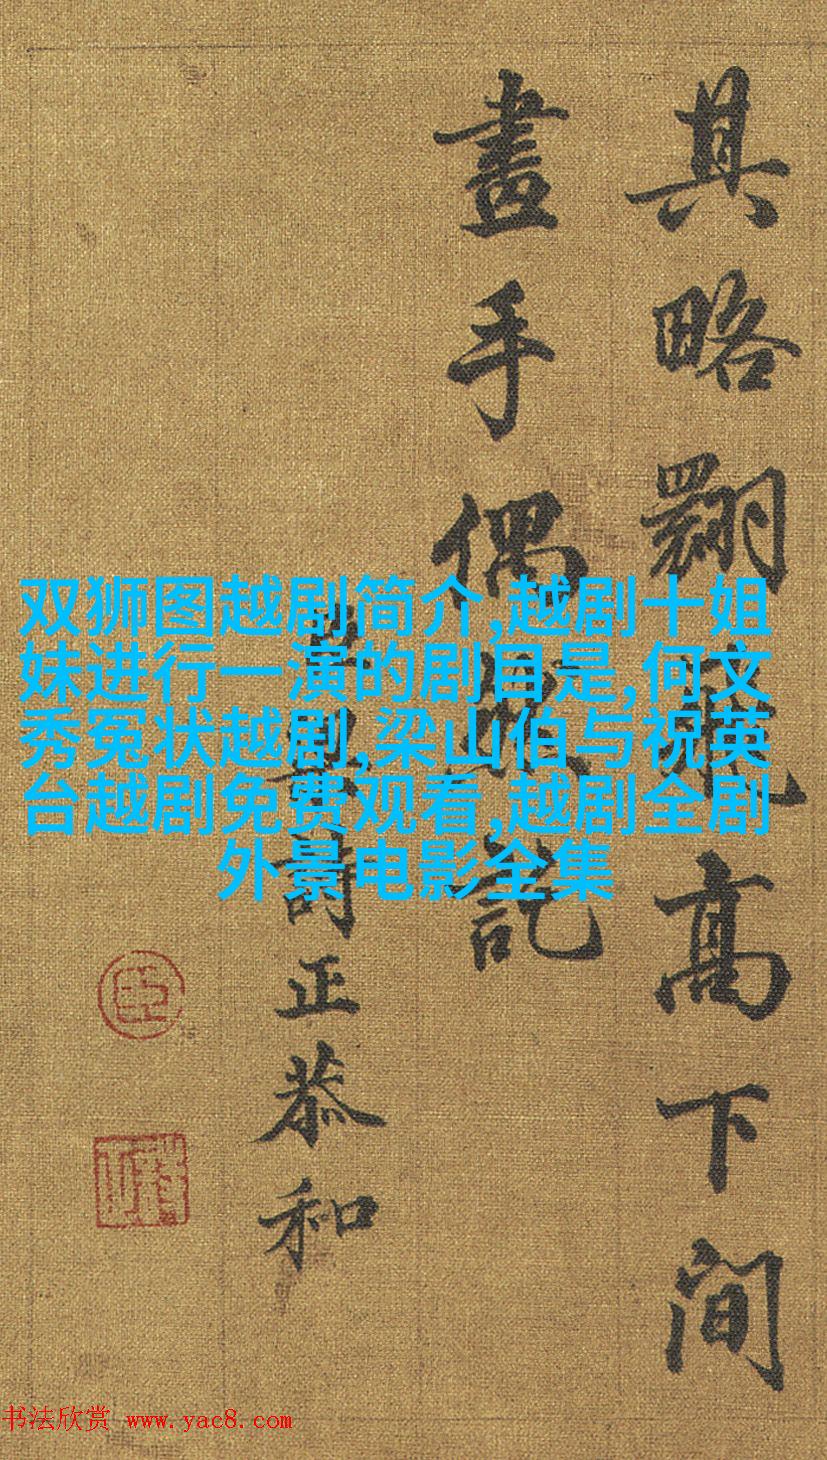 其略翾飛高下間
畫手偶記
詩正恭和
臣
双狮图越剧简介,越剧十姐
妹进行一演的剧目是,何文
秀冤状越剧,梁山伯与祝英
台越剧免费观看,越剧全剧
外景电影全集
书法欣赏 www.yac8.com